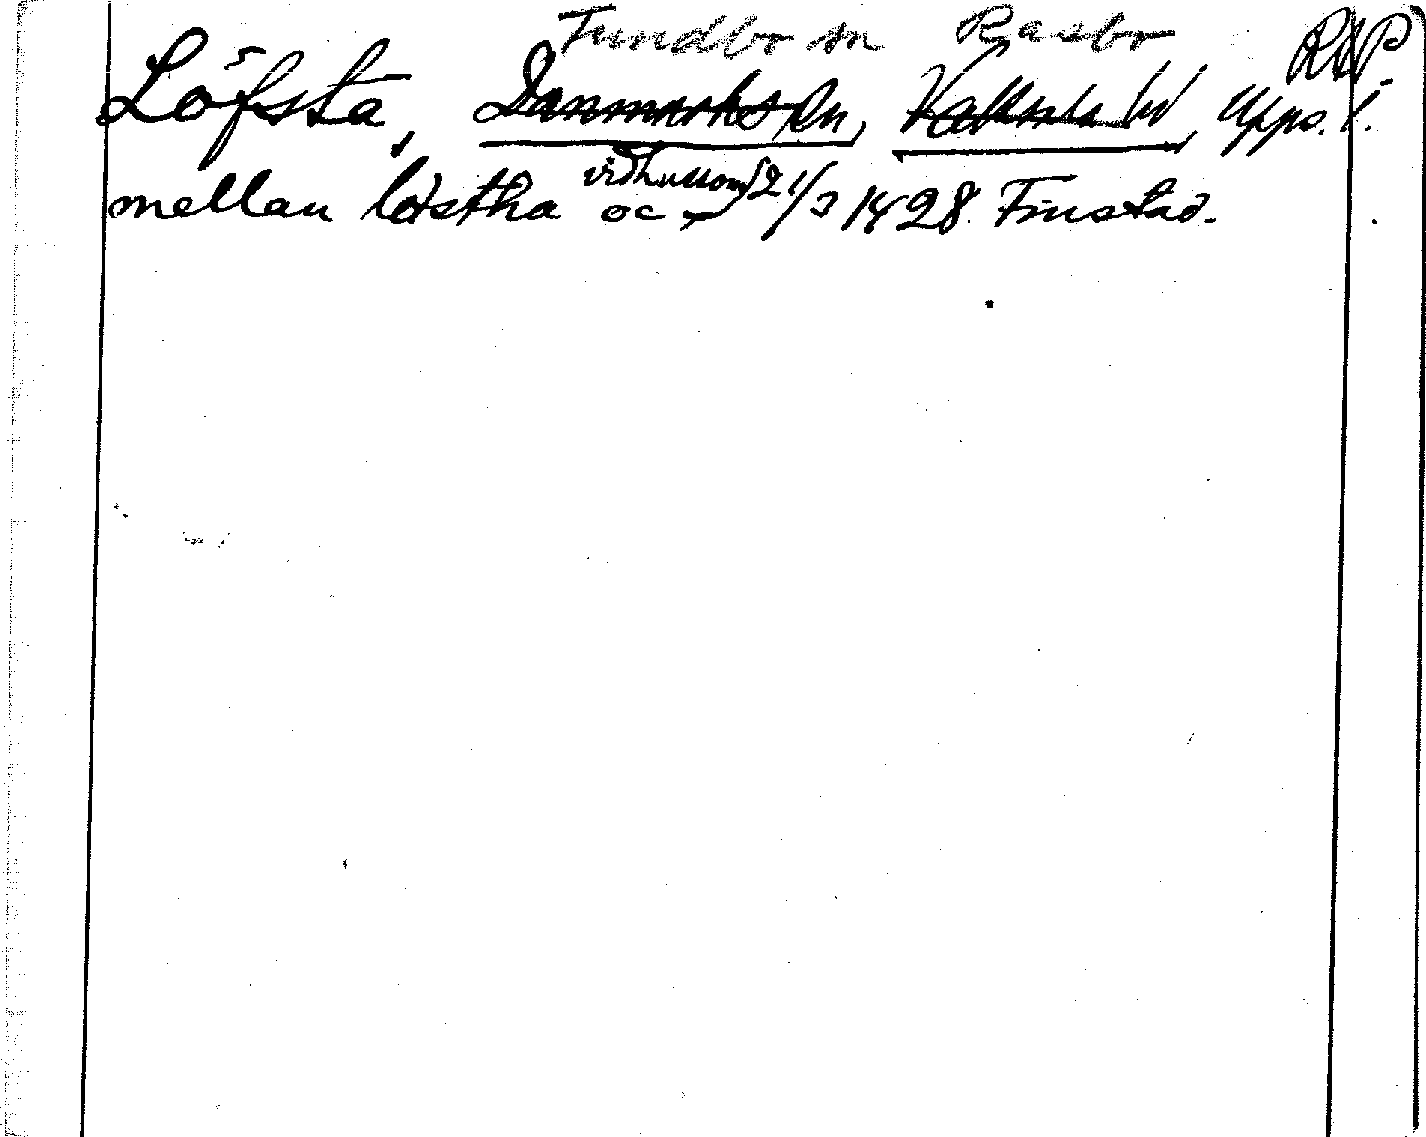 Fundbo sn Rasbo RAP.
Löfsta, Danmarks sn, Vaksala hd, Upps. l.
mellan lövstha oc vidhullom 21/3 1428. Finstad.